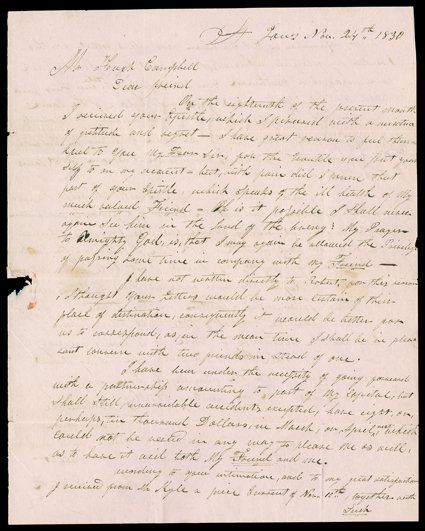 St Louis Nov. 24th. 1830
Mr Hugh Campbell
Dear friend
On the eighteenth of the present month
I received your Epistle, which I perused with a mixture
of gratitude and regret — I have great reason to feel thank
full to you My Dear Sir, for the trouble you put your
self to on my account — but, with pain did I peruse that
part of your Epistle, which speaks of the ill health of My
much valued Friend — Oh is it possible I shall never
again See him in the land of the living? My Prayer
to Almighty God, is, that I may again be allowed the
of passing some time in company with my Friend —
I have not written directly to Robert, for this reason
I thought Your Letters would be more certain of their
place of destination, consequently it would be better for
us to correspond, as, in the mean time I shall be in pleas
ant converse with two friends in stead of one.
I have been under the necessity of going forward
with a partnership amounting to part of my Capital, but
Shall Still, unavoidable accidents excepted, have eight, or,
perhaps, ten thousand Dollars, in March, or, April, which
Could not be used in any way to please me as well,
as to have it aid both My Friend and me.
according to your intimation, and to my great satisfaction
I received from Mr Kyle a price Current of Nov. 12th, together with
Such